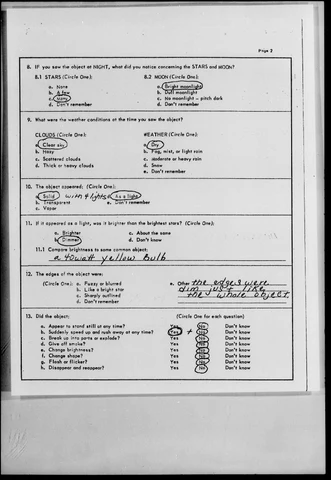 Page 2
8. IF you saw the object at NIGHT, what did you notice concerning the STARS and MOON?
8.1 STARS (Circle One): 8.2 MOON (Circle One):
a. None a. Bright moonlight
b. A few b. Dull moonlight
c. Many c. No moonlight - pitch dark
d. Don't remember d. Don't remember
9. What were the weather conditions at the time you saw the object?
CLOUDS (Circle One): WEATHER (Circle One):
a. Clear sky a. Dry
b. Hazy b. Fog, mist, or light rain
c. Scattered clouds c. Moderate or heavy rain
d. Thick or heavy clouds d. Snow
e. Don't remember
10. The object appeared: (Circle One):
a. Solid with 4 lights d. As a light
b. Transparent e. Don't remember
c. Vapor
11. If it appeared as a light, was it brighter than the brightest stars? (Circle One):
a. Brighter c. About the same
b. Dimmer d. Don't know
11.1 Compare brightness to some common object:
a 40 watt yellow bulb
12. The edges of the object were:
(Circle One): a. Fuzzy or blurred e. Other the edges were
b. Like a bright star dim just like
c. Sharply outlined the whole object
d. Don't remember
13. Did the object: (Circle One for each question)
a. Appear to stand still at any time? Yes No Don't know
b. Suddenly speed up and rush away at any time? Yes No Don't know
c. Break up into parts or explode? Yes No Don't know
d. Give off smoke? Yes No Don't know
e. Change brightness? Yes No Don't know
f. Change shape? Yes No Don't know
g. Flash or flicker? Yes No Don't know
h. Disappear and reappear? Yes No Don't know